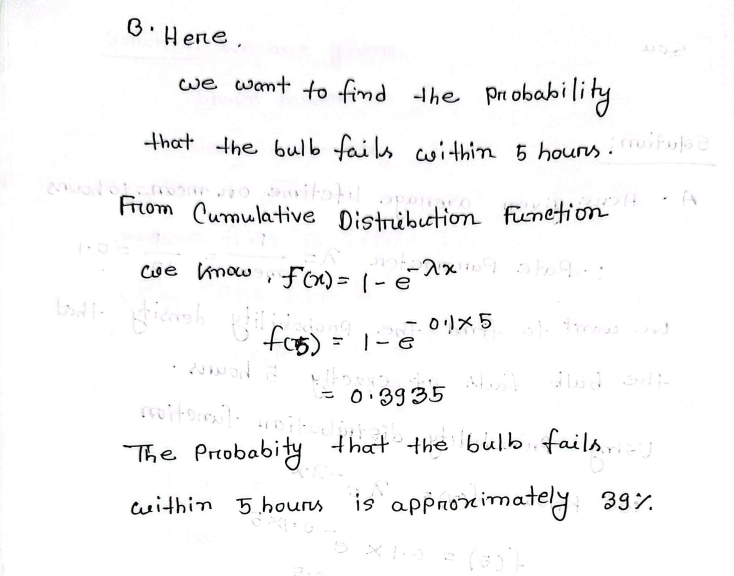 B. Here,
we want to find the probability
that the bulb fails within 5 hours.
From Cumulative Distribution Function
we know, f(x) = 1 - e^-λx
f(5) = 1 - e^-0.1×5
= 0.3935
The Probabity that the bulb fails
within 5 hours is approximately 39%.